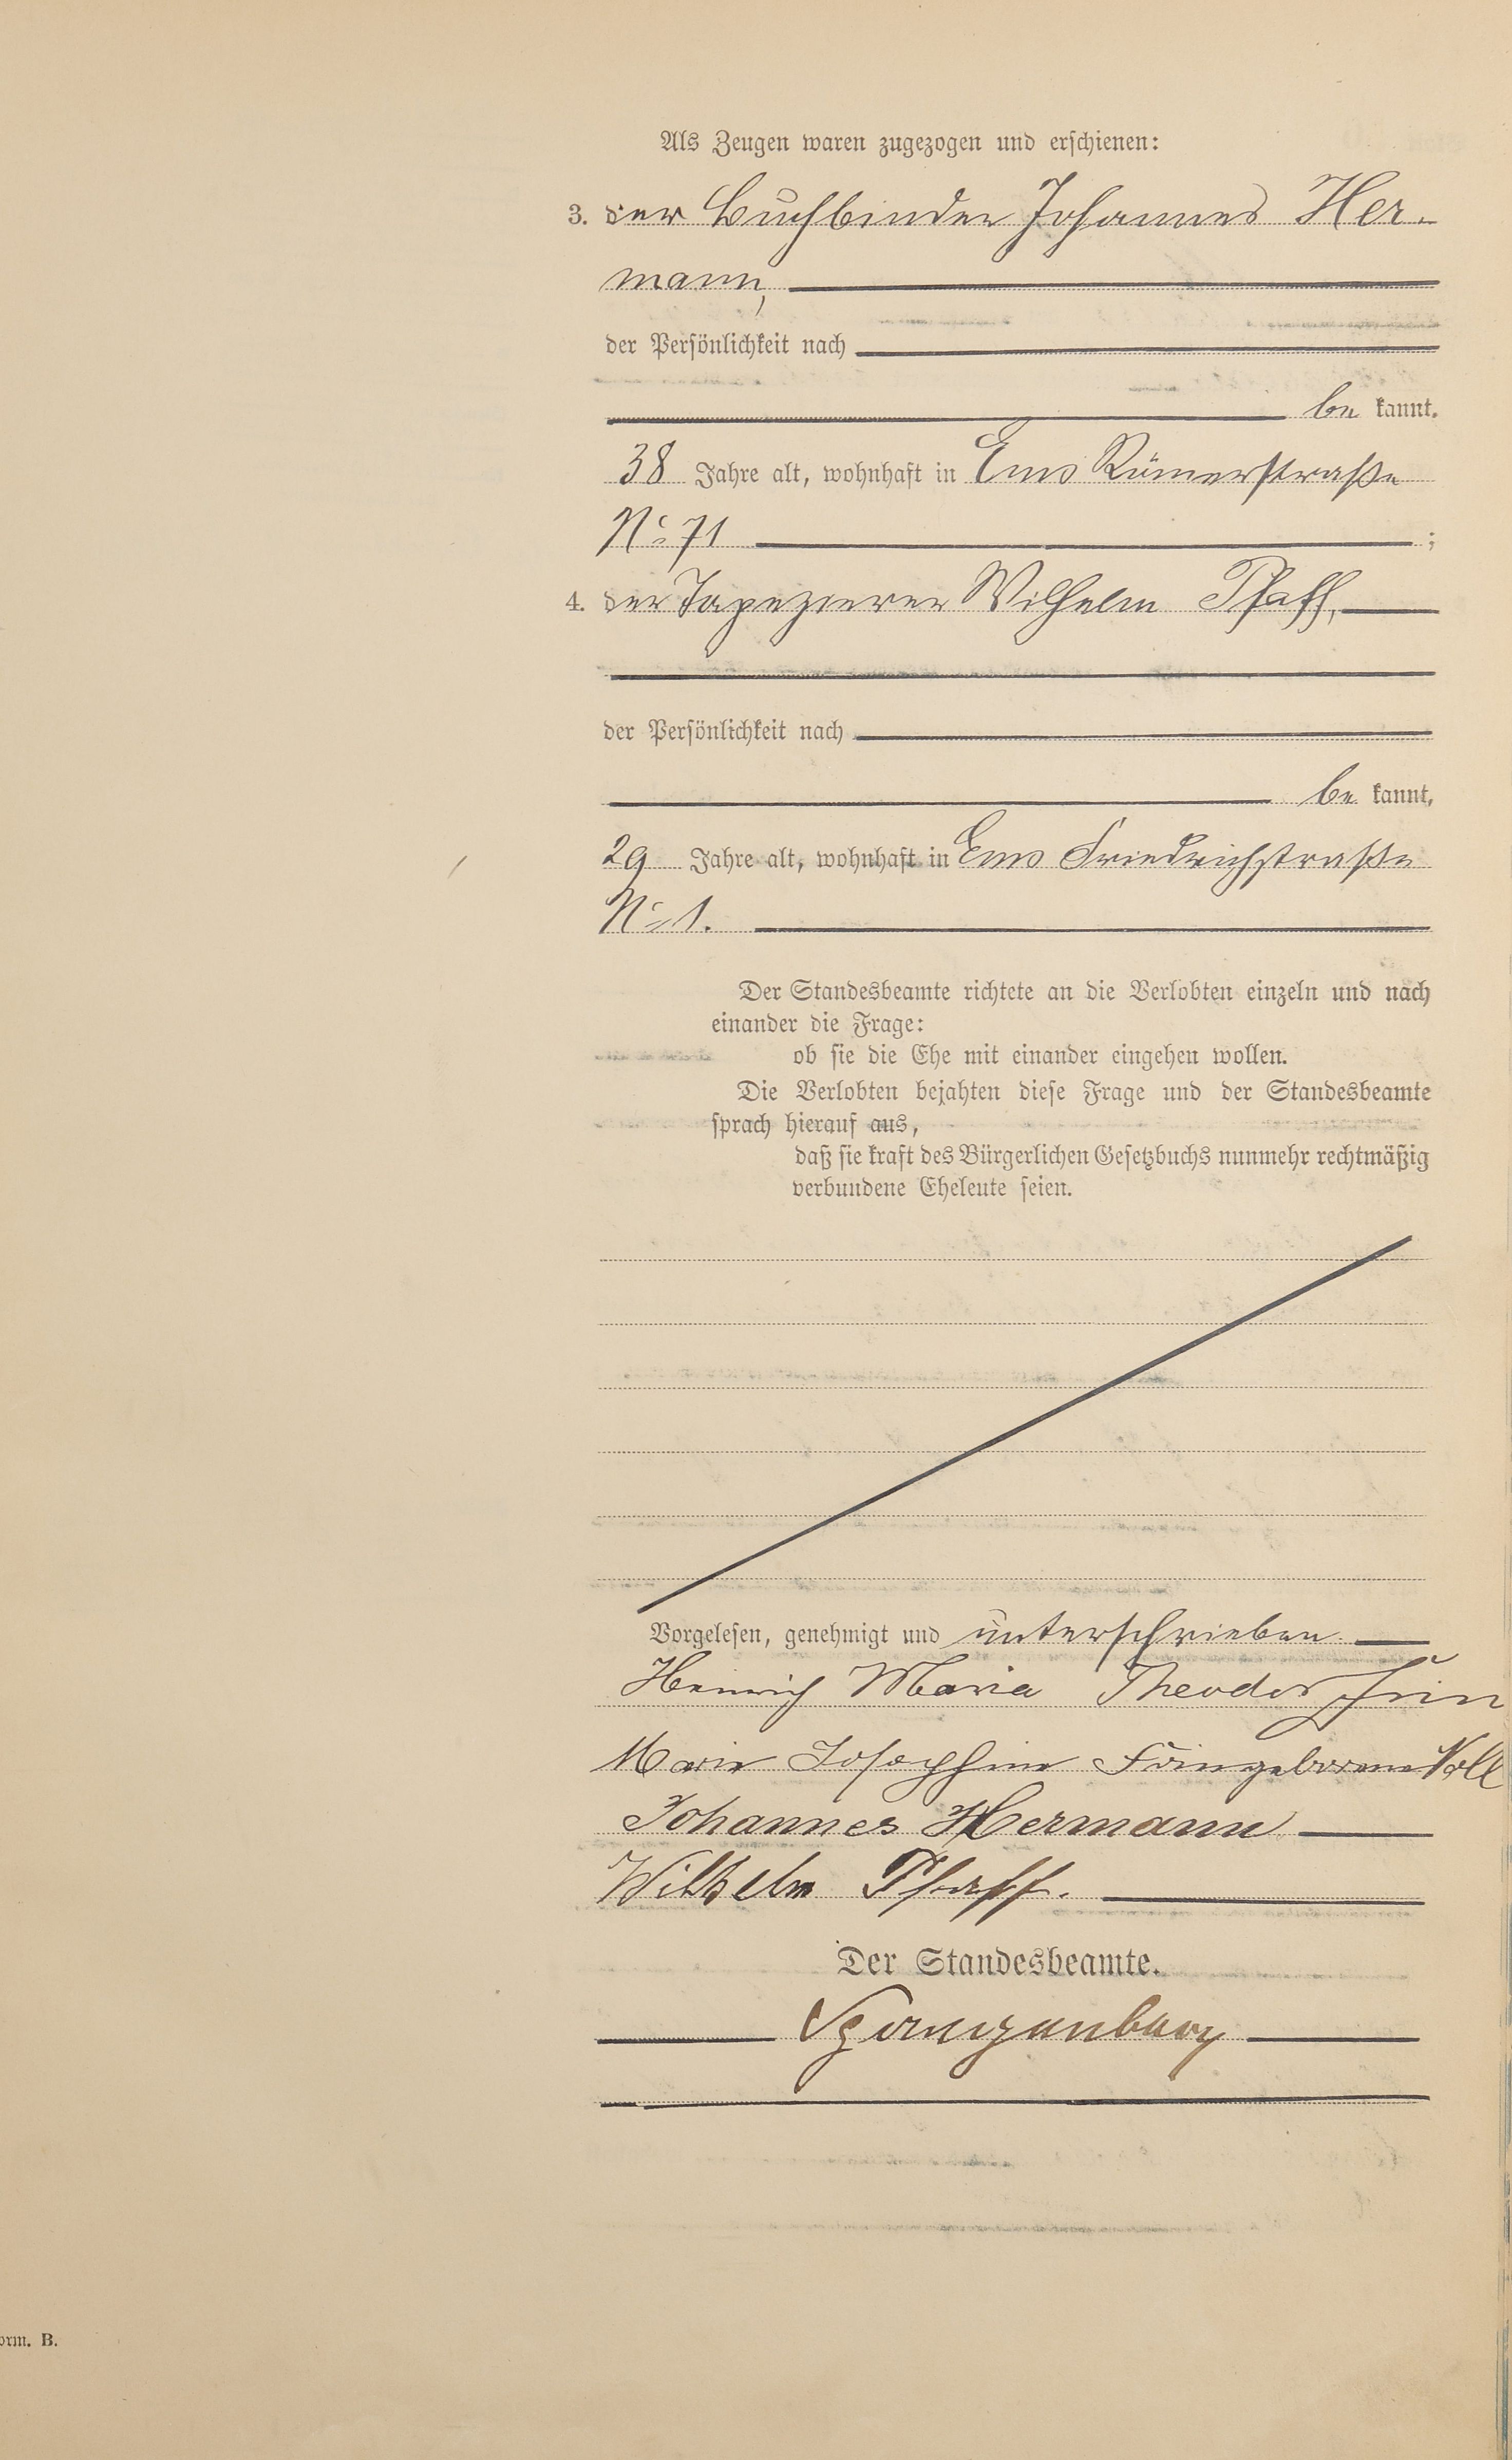 Als Zeugen waren zugezogen und erschienen:
3. der Buchbinder Johannes Her-
mann,
der Persönlichkeit nach
be kannt,
38 Jahre alt, wohnhaft in Ems Römerstraße
No 71 ;
4. der Tapezierer Wilhelm Pfaff,
der Persönlichkeit nach
be kannt,
29 Jahre alt, wohnhaft in Ems Friedrichstraße
No 1.
Der Standesbeamte richtete an die Verlobten einzeln und nach
einander die Frage:
ob sie die Ehe mit einander eingehen wollen.
Die Verlobten bejahten diese Frage und der Standesbeamte
sprach hierauf aus,
daß sie kraft des Bürgerlichen Gesetzbuchs nunmehr rechtmäßig
verbundene Eheleute seien.
Vorgelesen, genehmigt und unterschrieben.
Heinrich Maria Theodor
Marie Josephine geborene Noll
Johannes Hermann
Wilhelm Pfaff.
Der Standesbeamte.
Spangenberg
orm. B.